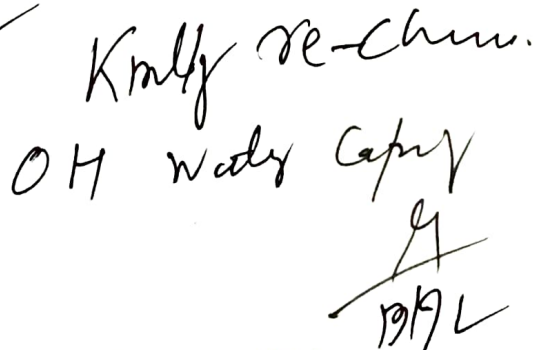 Kindly re-Check.
OH Water Capacity